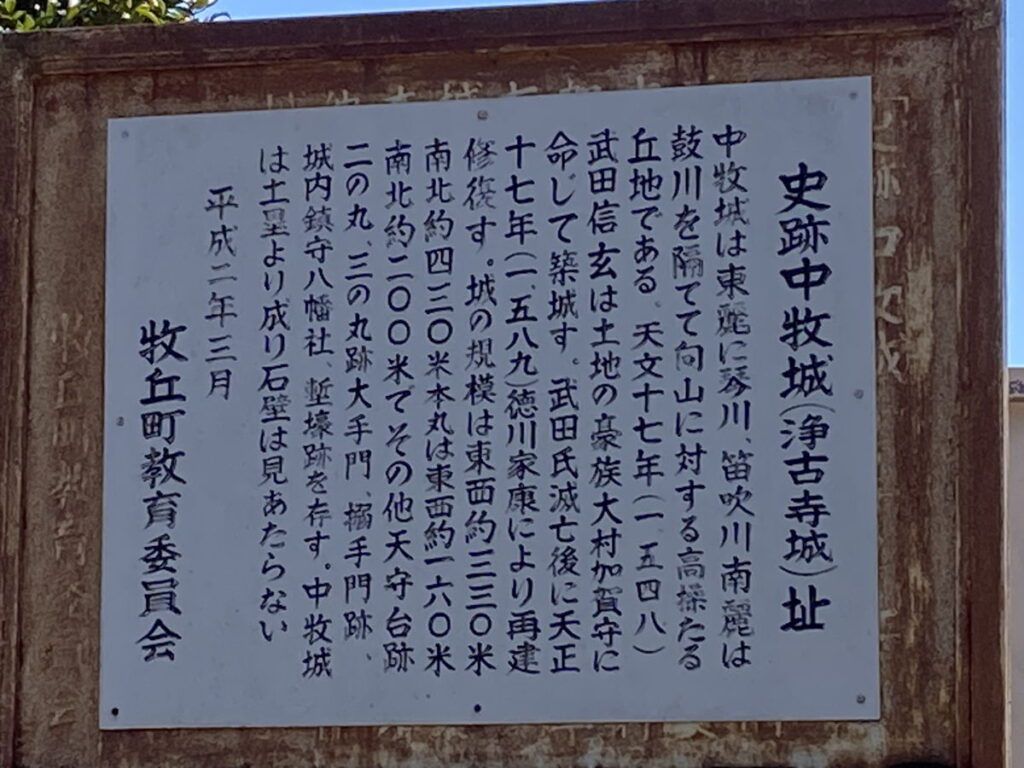 史跡中牧城(浄古寺城)址
中牧城は東麗に琴川、笛吹川南麗は
鼓川を隔てて向山に対する高燥たる
丘地である。天文十七年(一、五四八)
武田信玄は土地の豪族大村加賀守に
命じて築城す。武田氏滅亡後に天正
十七年(一、五八九)徳川家康により再建
修復す。城の規模は東西約三三〇米
南北約四三〇米本丸は東西約一六〇米
南北約二〇〇米でその他天守台跡
二の丸、三の丸跡大手門、搦手門跡、
城内鎮守八幡社、塹壕跡を存す。中牧城
は土塁より成り石壁は見あたらない
平成二年三月
牧丘町教育委員会